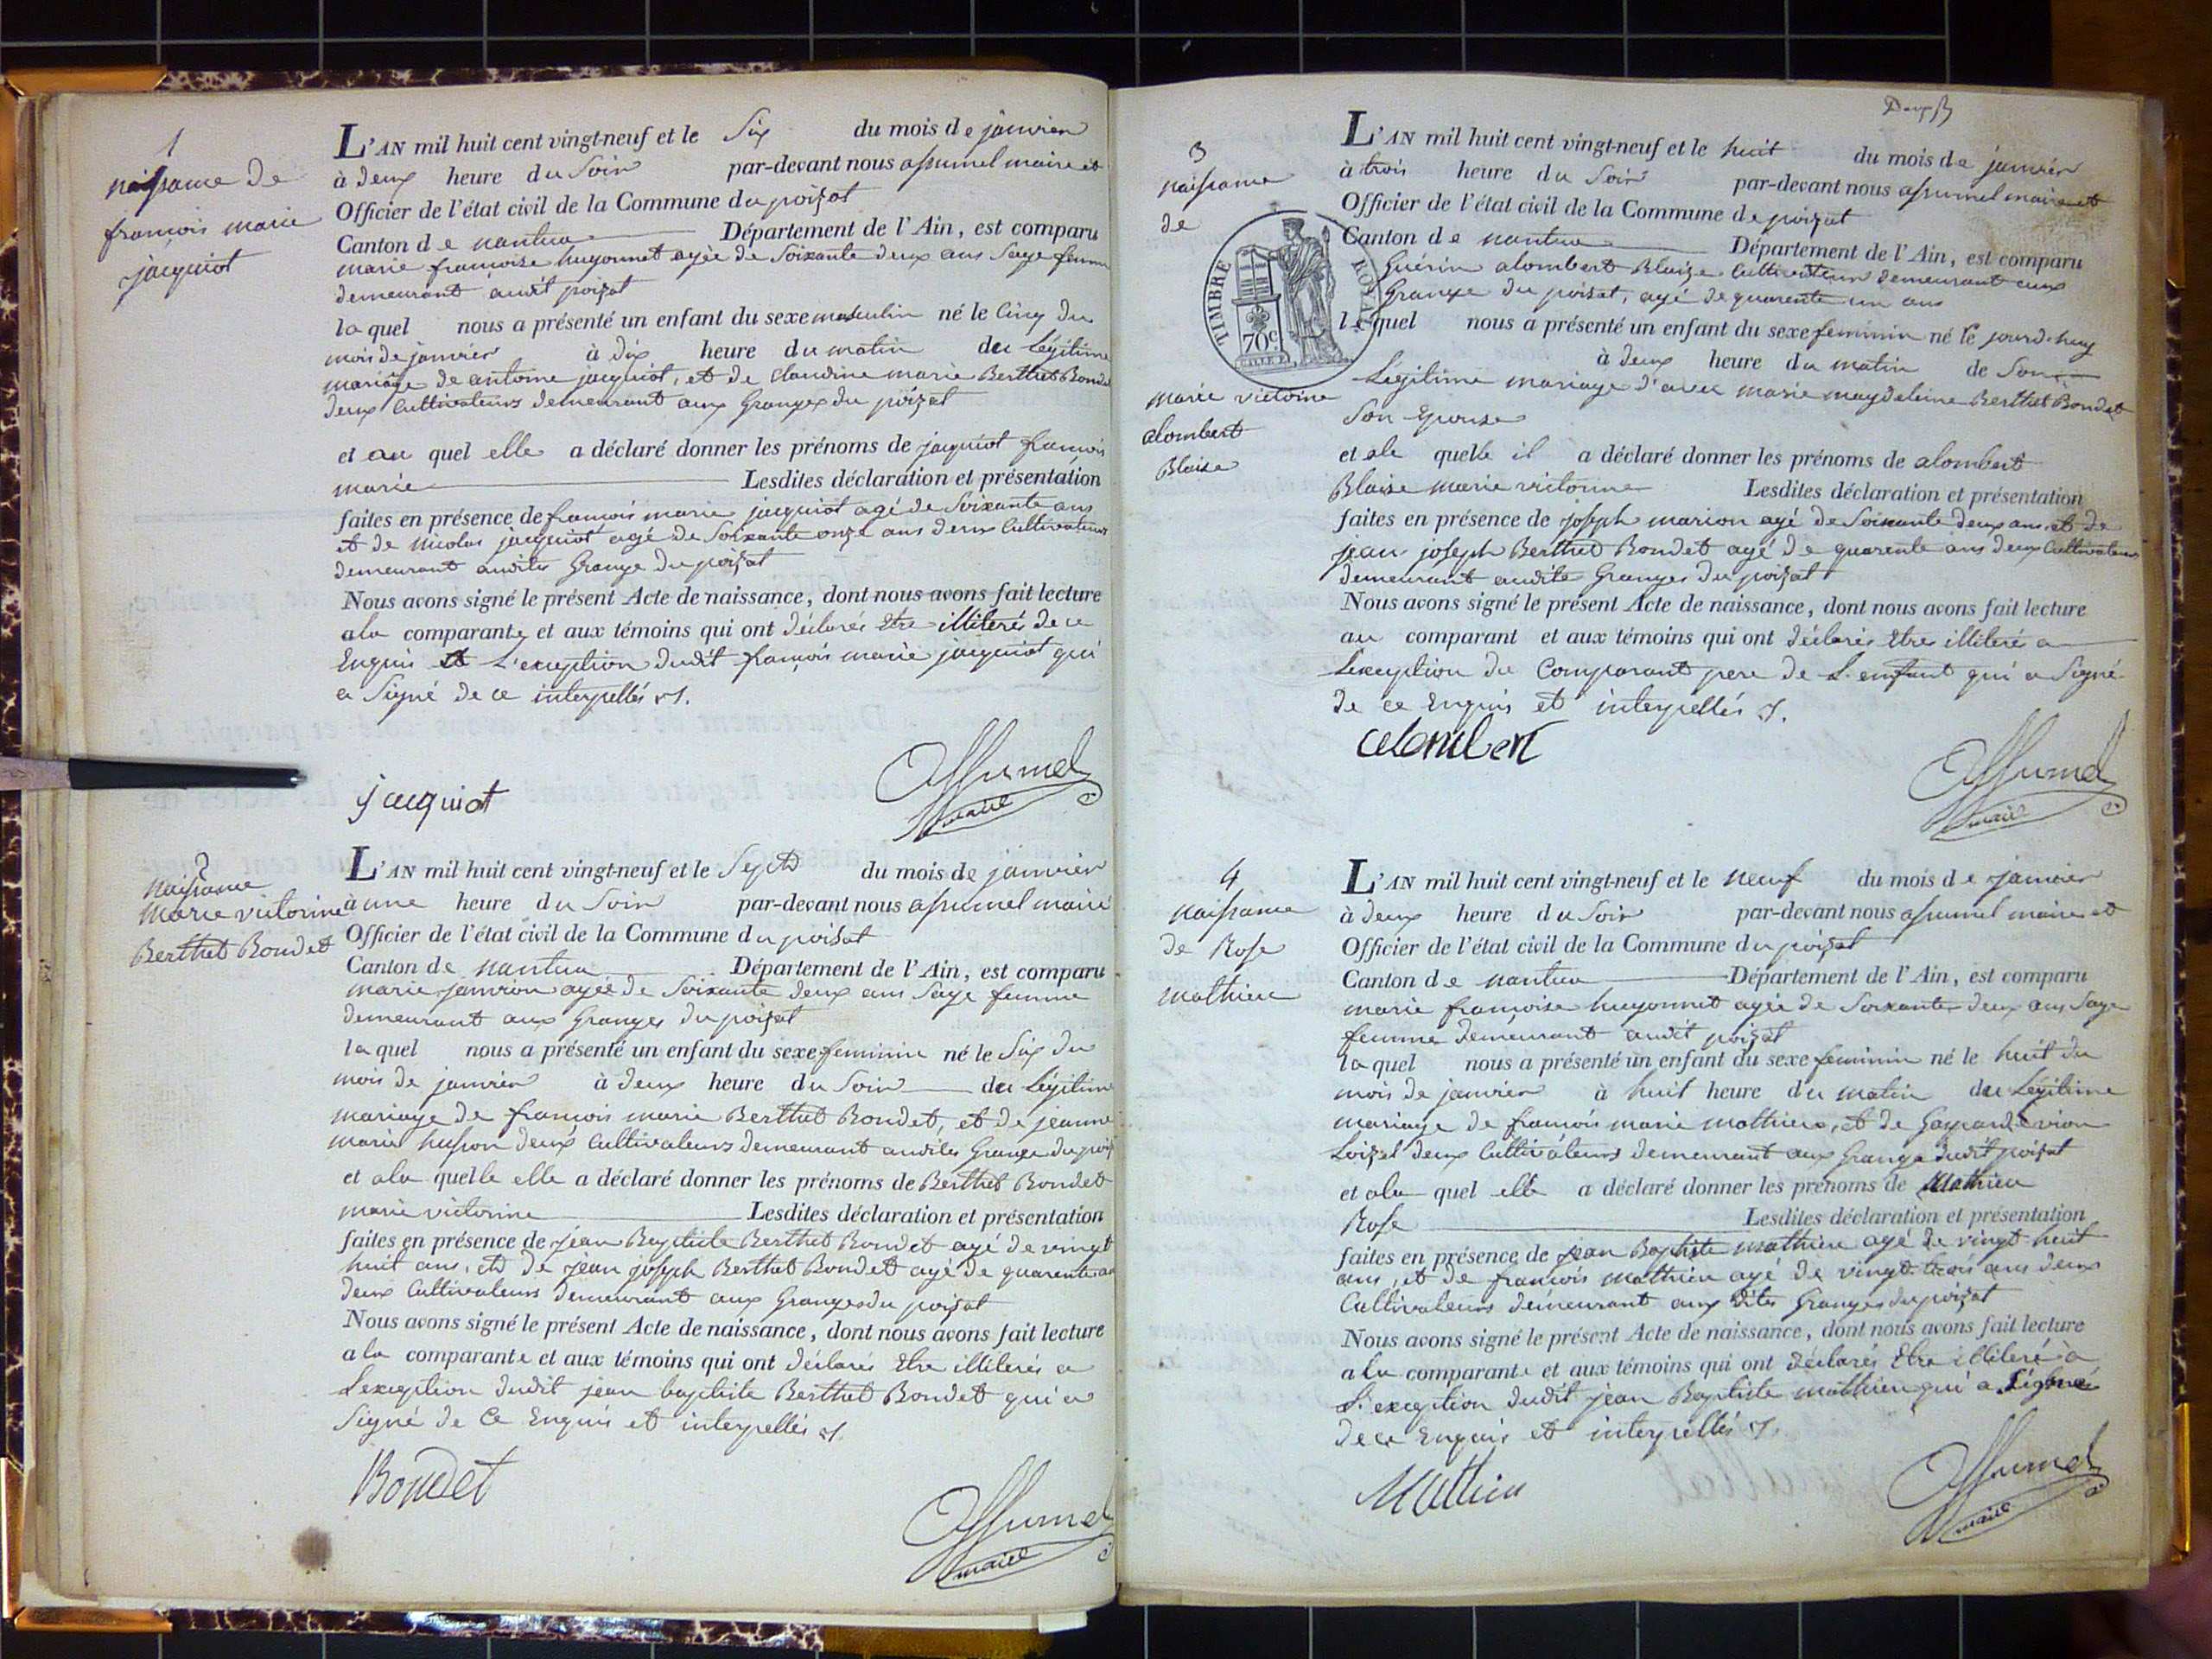 1
naissance de
françois marie
jacquiot
L'AN mil huit cent vingt-neuf et le Six du mois de janvier
à deux heure du Soir par-devant nous assumel maire et
Officier de l'état civil de la Commune du poizat
Canton de nantua Département de l'Ain, est comparu
marie françoise hugonnet agée de Soixante deux ans Sage femme
demeurant audit poizat
laquel nous a présenté un enfant du sexe masculin né le Cinq du
mois de janvier à dix heure du matin du Légitime
mariage de antoine jacquiot, et de claudine marie Berthet Bondet
deux Cultivateurs demeurant aux Granges du poizat
et au quel elle a déclaré donner les prénoms de jacquiot françois
marie Lesdites déclaration et présentation
faites en présence de françois marie jacquiot agé de Soixante ans
et de nicolas jacquiot agé de Soixante onze ans deux Cultivateurs
demeurant audites Grange du poizat
Nous avons signé le présent Acte de naissance, dont nous avons fait lecture
a la comparante et aux témoins qui ont déclarés Etre illiterés de ce
Enquis et L'exception dudit françois marie jacquiot qui
a Signé de ce interpellés
jacquiot
Assumel
maire
2
naissance
Marie victorine
Berthet Bondet
L'AN mil huit cent vingt-neuf et le Sept du mois de janvier
à une heure du Soir par-devant nous assumel maire
Officier de l'état civil de la Commune du poizat
Canton de nantua Département de l'Ain, est comparu
marie janvion agée de Soixante deux ans Sage femme
demeurant aux Granges du poizat
laquel nous a présenté un enfant du sexe feminin né le Six du
mois de janvier à deux heure du Soir du Légitime
mariage de françois marie Berthet Bondet, et de jeanne
marie husson deux Cultivateurs demeurant audites Grange du poizat
et a la quelle elle a déclaré donner les prénoms de Berthet Bondet
marie victorine Lesdites déclaration et présentation
faites en présence de jean Baptiste Berthet Bondet agé de vingt
huit ans, et de jean joseph Berthet Bondet agé de quarente ans
deux Cultivateurs demeurant aux Granges du poizat
Nous avons signé le présent Acte de naissance, dont nous avons fait lecture
a la comparante et aux témoins qui ont déclarés Etre illiterés a
L'exception dudit jean baptiste Berthet Bondet qui a
Signé de Ce Enquis et interpellés
Bondet
Assumel
maire
3
naissance
de
marie victorine
alombert
Blaise
TIMBRE ROYAL
70c
L'AN mil huit cent vingt-neuf et le huit du mois de janvier
à trois heure du Soir par-devant nous assumel maire et
Officier de l'état civil de la Commune de poizat
Canton de nantua Département de l'Ain, est comparu
Guérin alombert Blaize Cultivateur demeurant aux
Grange du poizat, agé de quarente un ans
lequel nous a présenté un enfant du sexe feminin né le jourd-huy
à deux heure du matin de Son
Légitime mariage d'avec marie magdeleine Berthet Bondet
Son Epouse
et a la quelle il a déclaré donner les prénoms de alombert
Blaise marie victorine Lesdites déclaration et présentation
faites en présence de joseph marion agé de Soixante deux ans et de
jean joseph Berthet Bondet agé de quarente ans deux Cultivateurs
demeurant audite Granges du poizat
Nous avons signé le présent Acte de naissance, dont nous avons fait lecture
au comparant et aux témoins qui ont déclarés Etres illiteré a
Lexception du Comparant pere de L'enfant qui a Signé
de ce Enquis et interpellés
alombert
Assumel
maire
4
naissance
de Rose
mathieu
L'AN mil huit cent vingt-neuf et le neuf du mois de janvier
à deux heure du Soir par-devant nous assumel maire et
Officier de l'état civil de la Commune du poizat
Canton de nantua Département de l'Ain, est comparu
marie françoise hugonnet agée de Soixante deux ans Sage
femme demeurant audit poizat
laquel nous a présenté un enfant du sexe feminin né le huit du
mois de janvier à huit heure du matin du Légitime
mariage de françois marie mathieu, et de Gaspardevion
Loizel deux Cultivateurs demeurant aux Grange dudit poizat
et a la quel elle a déclaré donner les prénoms de Mathieu
Rose Lesdites déclaration et présentation
faites en présence de jean Baptiste mathieu agé de vingt huit
ans, et de françois mathieu agé de vingt-trois ans deux
Cultivateurs demeurant aux dites Granges du poizat
Nous avons signé le présent Acte de naissance, dont nous avons fait lecture
a la comparante et aux témoins qui ont déclarés Etre illiteré a
L'exception dudit jean Baptiste mathieu qui a Signé
de ce Enquis et interpellés
Mathieu
Assumel
maire